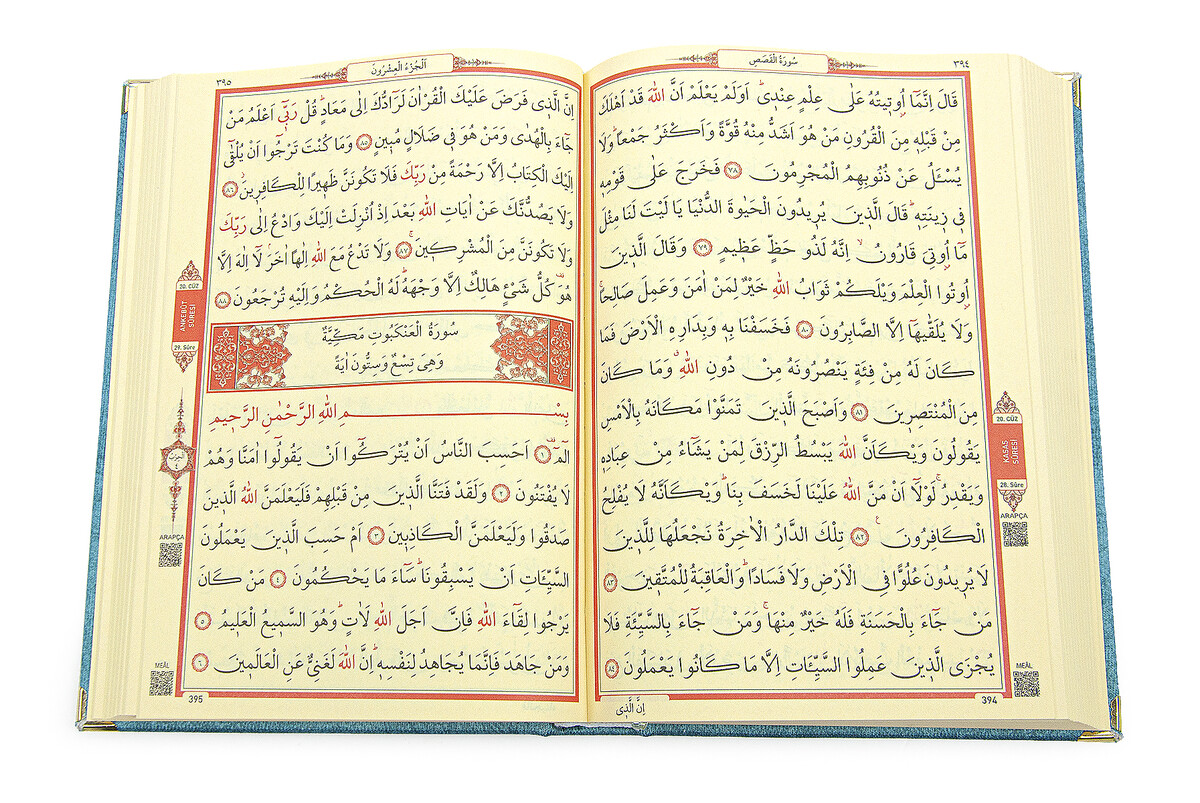 ٣٩٤
سُورَةُ الْقَصَصِ
قَالَ اِنَّمَٓا اُو۫ت۪يتُهُ عَلٰى عِلْمٍ عِنْد۪ىۜ اَوَلَمْ يَعْلَمْ اَنَّ اللّٰهَ قَدْ اَهْلَكَ
مِنْ قَبْلِه۪ مِنَ الْقُرُونِ مَنْ هُوَ اَشَدُّ مِنْهُ قُوَّةً وَاَكْثَرُ جَمْعاًۜ وَلَا
يُسْـَٔلُ عَنْ ذُنُوبِهِمُ الْمُجْرِمُونَ ﴿٧٨﴾ فَخَرَجَ عَلٰى قَوْمِه۪
ف۪ى ز۪ينَتِه۪ۜ قَالَ الَّذ۪ينَ يُر۪يدُونَ الْحَيٰوةَ الدُّنْيَا يَا لَيْتَ لَنَا مِثْلَ
مَٓا اُو۫تِىَ قَارُونُۙ اِنَّهُ لَذُو حَظٍّ عَظ۪يمٍ ﴿٧٩﴾ وَقَالَ الَّذ۪ينَ
اُو۫تُوا الْعِلْمَ وَيْلَكُمْ ثَوَابُ اللّٰهِ خَيْرٌ لِمَنْ اٰمَنَ وَعَمِلَ صَالِحاًۚ
وَلَا يُلَقّٰيهَٓا اِلَّا الصَّابِرُونَ ﴿٨٠﴾ فَخَسَفْنَا بِه۪ وَبِدَارِهِ الْاَرْضَ فَمَا
كَانَ لَهُ مِنْ فِئَةٍ يَنْصُرُونَهُ مِنْ دُونِ اللّٰهِۗ وَمَا كَانَ
مِنَ الْمُنْتَصِر۪ينَ ﴿٨١﴾ وَاَصْبَحَ الَّذ۪ينَ تَمَنَّوْا مَكَانَهُ بِالْاَمْسِ
يَقُولُونَ وَيْكَاَنَّ اللّٰهَ يَبْسُطُ الرِّزْقَ لِمَنْ يَشَٓاءُ مِنْ عِبَادِه۪
وَيَقْدِرُۚ لَوْلَٓا اَنْ مَنَّ اللّٰهُ عَلَيْنَا لَخَسَفَ بِنَاۜ وَيْكَاَنَّهُ لَا يُفْلِحُ
الْكَافِرُونَ۟ ﴿٨٢﴾ تِلْكَ الدَّارُ الْاٰخِرَةُ نَجْعَلُهَا لِلَّذ۪ينَ
لَا يُر۪يدُونَ عُلُواًّ فِى الْاَرْضِ وَلَا فَسَاداًۜ وَالْعَاقِبَةُ لِلْمُتَّق۪ينَ ﴿٨٣﴾
مَنْ جَٓاءَ بِالْحَسَنَةِ فَلَهُ خَيْرٌ مِنْهَاۚ وَمَنْ جَٓاءَ بِالسَّيِّئَةِ فَلَا
يُجْزَى الَّذ۪ينَ عَمِلُوا السَّيِّـَٔاتِ اِلَّا مَا كَانُوا يَعْمَلُونَ ﴿٨٤﴾
اِنَّ الَّذ۪ى
394
20. CÜZ
KASAS
SÛRESİ
28. Sûre
ARAPÇA
MEÂL
٣٩٥
اَلْجُزْءُ الْعِشْرُونَ
اِنَّ الَّذ۪ى فَرَضَ عَلَيْكَ الْقُرْاٰنَ لَرَٓادُّكَ اِلٰى مَعَادٍۜ قُلْ رَبّ۪ٓى اَعْلَمُ مَنْ
جَٓاءَ بِالْهُدٰى وَمَنْ هُوَ ف۪ى ضَلَالٍ مُب۪ينٍ ﴿٨٥﴾ وَمَا كُنْتَ تَرْجُٓوا اَنْ يُلْقٰٓى
اِلَيْكَ الْكِتَابُ اِلَّا رَحْمَةً مِنْ رَبِّكَ فَلَا تَكُونَنَّ ظَه۪يراً لِلْكَافِر۪ينَۘ ﴿٨٦﴾
وَلَا يَصُدُّنَّكَ عَنْ اٰيَاتِ اللّٰهِ بَعْدَ اِذْ اُنْزِلَتْ اِلَيْكَ وَادْعُ اِلٰى رَبِّكَ
وَلَا تَكُونَنَّ مِنَ الْمُشْرِك۪ينَۚ ﴿٨٧﴾ وَلَا تَدْعُ مَعَ اللّٰهِ اِلٰهاً اٰخَرَۢ لَٓا اِلٰهَ اِلَّا
هُوَ۠ كُلُّ شَىْءٍ هَالِكٌ اِلَّا وَجْهَهُۜ لَهُ الْحُكْمُ وَاِلَيْهِ تُرْجَعُونَ ﴿٨٨﴾
سُورَةُ الْعَنْكَبُوتِ مَكِّيَّةٌ
وَهِىَ تِسْعٌ وَسِتُّونَ اٰيَةً
بِسْمِ اللّٰهِ الرَّحْمٰنِ الرَّح۪يمِ
الٓمٓ۠ ﴿١﴾ اَحَسِبَ النَّاسُ اَنْ يُتْرَكُٓوا اَنْ يَقُولُٓوا اٰمَنَّا وَهُمْ
لَا يُفْتَنُونَ ﴿٢﴾ وَلَقَدْ فَتَنَّا الَّذ۪ينَ مِنْ قَبْلِهِمْ فَلَيَعْلَمَنَّ اللّٰهُ الَّذ۪ينَ
صَدَقُوا وَلَيَعْلَمَنَّ الْكَاذِب۪ينَ ﴿٣﴾ اَمْ حَسِبَ الَّذ۪ينَ يَعْمَلُونَ
السَّيِّـَٔاتِ اَنْ يَسْبِقُونَاۜ سَٓاءَ مَا يَحْكُمُونَ ﴿٤﴾ مَنْ كَانَ
يَرْجُوا لِقَٓاءَ اللّٰهِ فَاِنَّ اَجَلَ اللّٰهِ لَاٰتٍۜ وَهُوَ السَّم۪يعُ الْعَل۪يمُ ﴿٥﴾
وَمَنْ جَاهَدَ فَاِنَّمَا يُجَاهِدُ لِنَفْسِه۪ۜ اِنَّ اللّٰهَ لَغَنِىٌّ عَنِ الْعَالَم۪ينَ ﴿٦﴾
395
20. CÜZ
ANKEBÛT
SÛRESİ
29. Sûre
اَلْحِزْبُ
٤
ARAPÇA
MEÂL